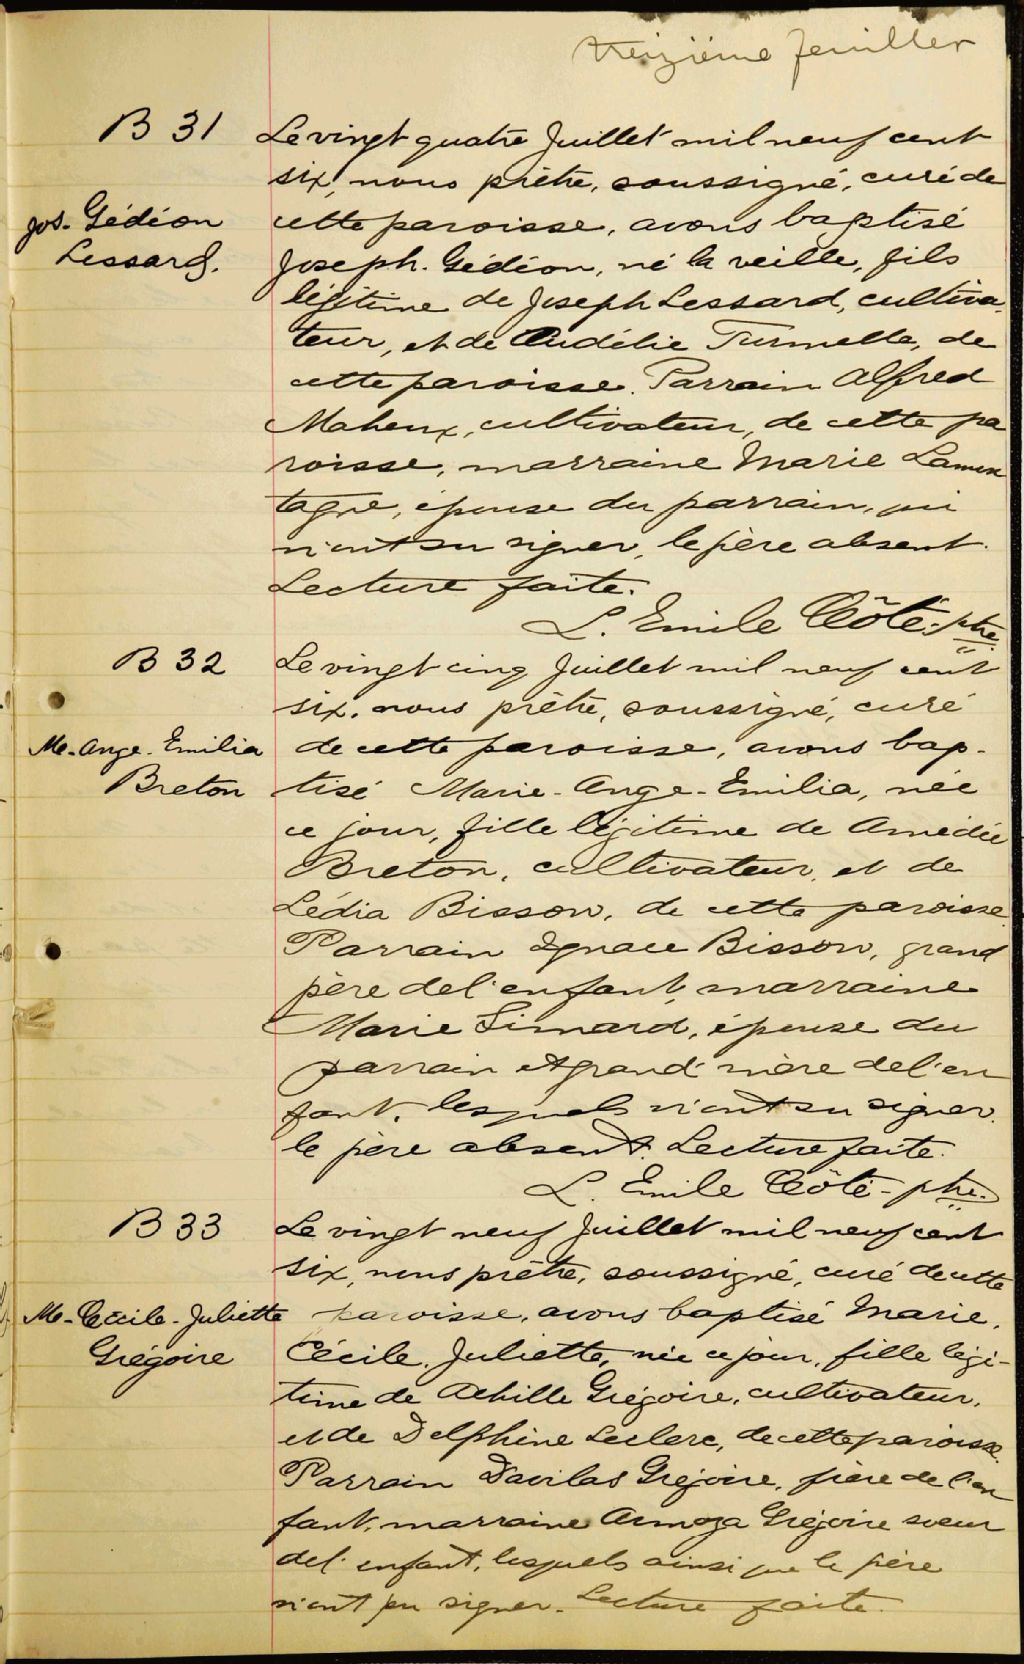 treizième feuillet
B 31
Le vingt quatre Juillet mil neuf cent
six, nous prêtre, soussigné, curé de
Jos. Gédéon
cette paroisse, avons baptisé
Lessard.
Joseph. Gédéon, né la veille, fils
légitime de Joseph Lessard, cultiva-
teur, et de Audélie Turmelle, de
cette paroisse. Parrain Alfred
Maheux, cultivateur, de cette pa
roisse, marraine Marie Lamon
tagne, épouse du parrain, qui
n'ont su signer, le père absent.
Lecture faite.
L. Emile Côté, ptre
B 32
Le vingt cinq Juillet mil neuf cent
six, nous prêtre, soussigné, curé
Me-Ange-Emilia
de cette paroisse, avons bap-
Breton
tisé Marie-Ange-Emilia, née
ce jour, fille légitime de Amédée
Breton, cultivateur, et de
Lédia Bisson, de cette paroisse
Parrain Ignace Bisson, grand
père de l'enfant, marraine
Marie Simard, épouse du
parrain et grand'mère de l'en
fant, lesquels n'ont su signer.
le père absent. Lecture faite.
L. Emile Côté-ptre.
B 33
Le vingt neuf Juillet mil neuf cent
six, nous prêtre, soussigné, curé de cette
Me-Cécile-Juliette
paroisse, avons baptisé Marie,
Grégoire
Cécile, Juliette, née ce jour, fille légi-
time de Achille Grégoire, cultivateur,
et de Delphine Leclerc, de cette paroisse.
Parrain Davilas Grégoire, frère de l'en
fant, marraine Armoza Grégoire soeur
de l'enfant, lesquels ainsi que le père
n'ont pu signer. Lecture faite.